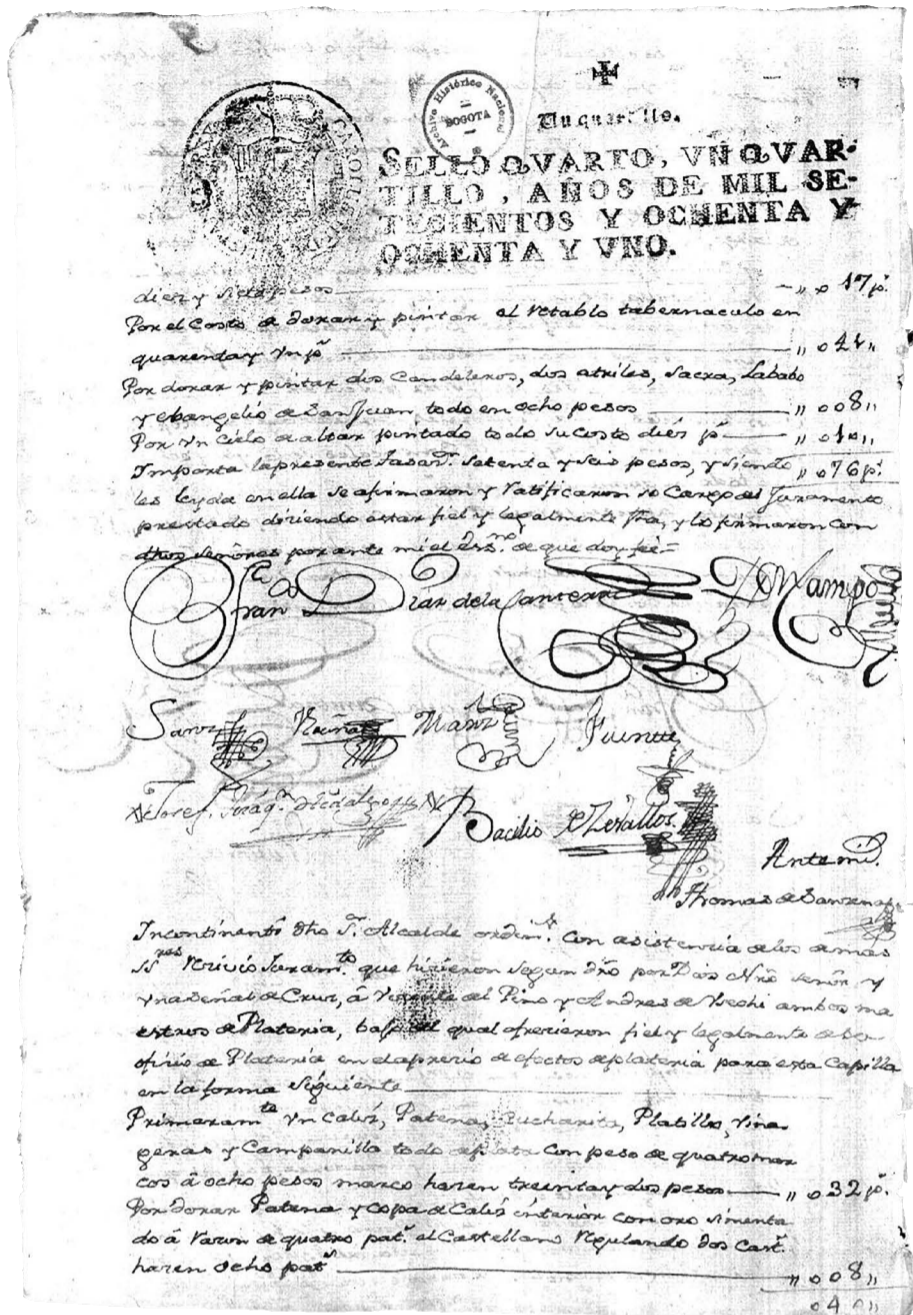 Archivo Histórico Nacional
BOGOTA
Un quartillo.
SELLO QVARTO, VN QVAR-
TILLO, AÑOS DE MIL SE-
TECIENTOS Y OCHENTA Y
OCHENTA Y VNO.
diez y siete pesos — „ 017 p.
Por el Costo de dorar y pintar el retablo tabernaculo en
quarenta y un p.
Por dorar y pintar dos Candeleros, dos atriles, Sacra, Lababo
y ebangelio de San Juan, todo en ocho pesos — „ 008 „
Por vn Cielo de altar pintado todo su costo dies p. — „ 010 „
Importa la presente tasan. setenta y seis pesos, y siendo „ 076 p.
les leyda en ella se afirmaron y ratificaron so Cargo del Juramento
prestado diciendo estar fiel y legalmente fha, y lo firmaron con
dhos señores por ante mi el Essno. de que doy fee=
Franco Diaz de la Canterra Ocampo
Sanz Muñoz Puente
Torres Bacilio de Zevallos
Ante mi.
Thomas de
Incontinenti dho Sr. Alcalde ordino. Con asistencia de los demas
SSres Recivio Juramto. que hicieron segun dro por Dios Nro señor y
vna señal de Cruz, â Vicente del Pino y Andres de ambos ma
estros de Plateria, bajo del qual ofrecieron fiel y legalmente de su
oficio de Plateria en el aprecio de efectos de plateria para esta Capilla
en la forma siguiente
Primeramte vn Caliz, Patena, Cucharita, Platillo, Vina
geras y Campanilla todo de plata Con peso de quatro mar
cos â ocho pesos marco hacen treinta y dos pesos — „ 032 p.
Por dorar Patena y copa de Caliz interior con oro simenta
do â razon de quatro pat. el Castellano Regulando dos Cast.
hacen ocho pat. — „ 008 „